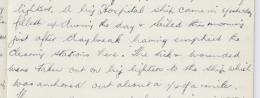 lighters. A big Hospital ship came in yesterday
filled up during the day & sailed this morning
just after daybreak having emptied the
clearing stations here. The sick & wounded
were taken out on big lighters to the ship which
was anchored out about a mile.